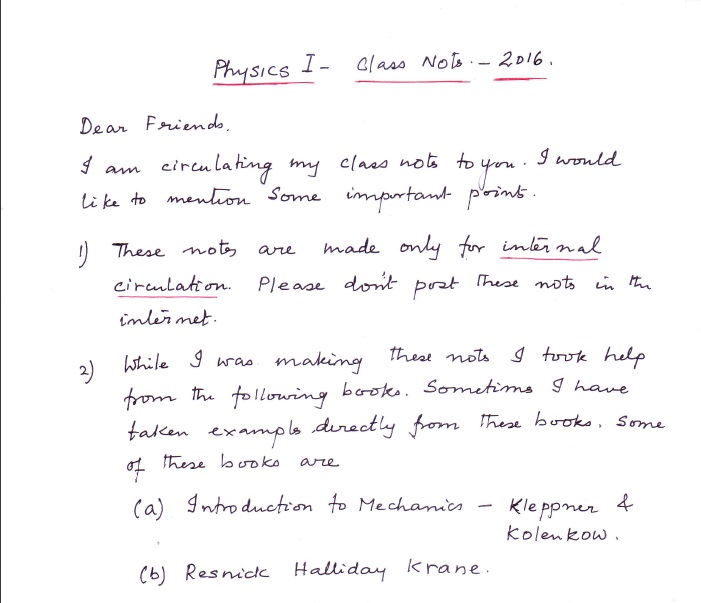 Physics I - Class Notes - 2016.
Dear Friends.
I am circulating my class nots to you. I would
like to mention some important points.
1) These notes are made only for internal
circulation. Please don't post these nots in the
internet.
2) While I was making these nots I took help
from the following books. Sometims I have
taken exampls directly from these books. Some
of these books are
(a) Introduction to Mechanics - Kleppner &
Kolenkow.
(b) Resnick Halliday Krane.